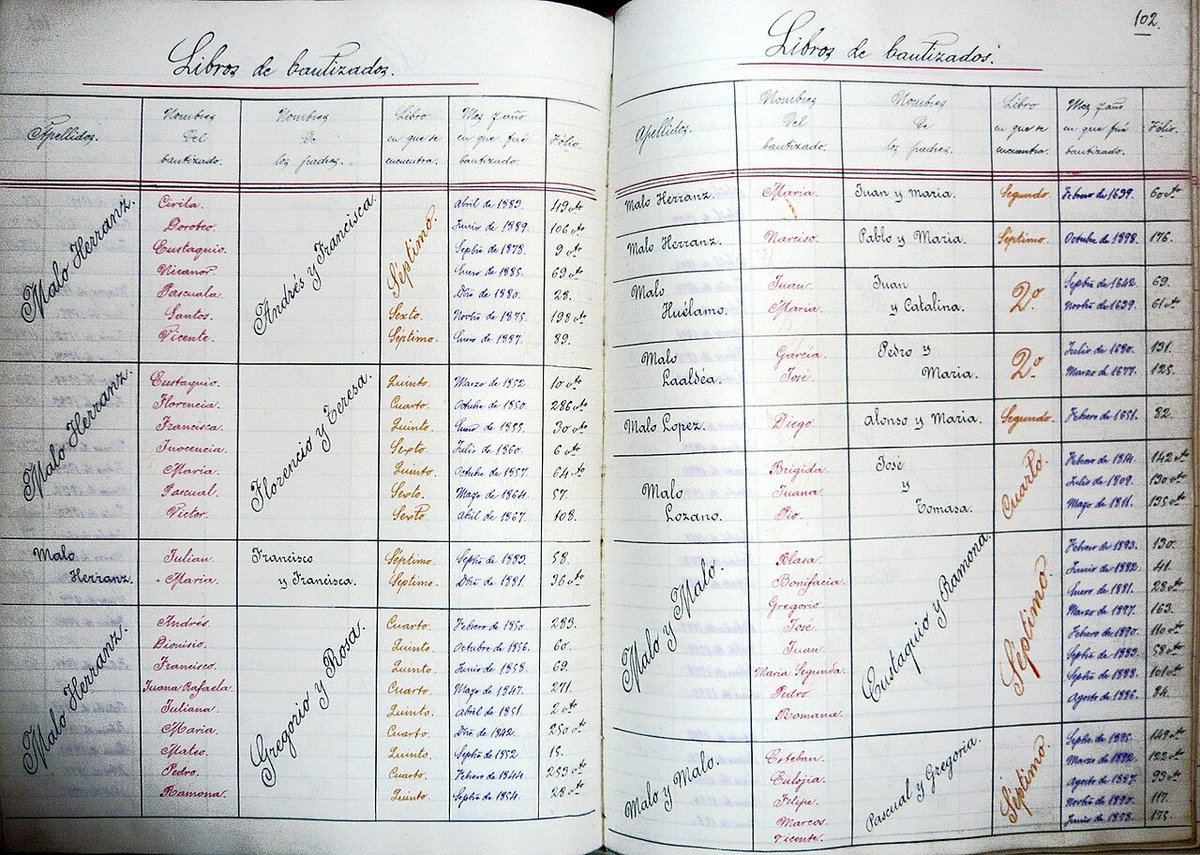 Libros de bautizados.
Apellidos. Nombres del bautizado. Nombres de los padres. Libro en que se encuentra. Mes y año en que fué bautizado. Folio.
Malo Herranz. Andrés y Francisca. Séptimo.
Cirila. Abril de 1883. 49 vto
Doroteo. Junio de 1889. 106 vto
Eustaquio. Septbe de 1878. 9 vto
Nicanor. Enero de 1885. 69 vto
Pascuala. Dbre de 1880. 28.
Santos. Sexto. Novbe de 1875. 198 vto
Vicente. Séptimo. Enero de 1887. 89.
Malo Herranz. Florencio y Teresa.
Eustaquio. Quinto. Marzo de 1852. 10 vto
Florencia. Cuarto. Octubre de 1850. 286 vto
Francisca. Quinto. Enero de 1855. 30 vto
Inocencia. Sexto. Julio de 1860. 6 vto
Maria. Quinto. Octubre de 1857. 64 vto
Pascual. Sexto. Mayo de 1864. 57.
Victor. Sexto. Abril de 1867. 108.
Malo Herranz. Francisco y Francisca.
Julian. Séptimo. Septbe de 1883. 58.
Maria. Septimo. Dbre de 1881. 36 vto
Malo Herranz. Gregorio y Rosa.
Andrés. Cuarto. Febrero de 1850. 283.
Dionisio. Quinto. Octubre de 1856. 60.
Francisco. Quinto. Junio de 1858. 69.
Juana Rafaela. Cuarto. Mayo de 1847. 271.
Juliana. Quinto. Abril de 1851. 2 vto
Maria. Cuarto. Dbre de 1842. 250 vto
Mateo. Quinto. Septbe de 1852. 15.
Pedro. Cuarto. Febrero de 1844. 253 vto
Ramona. Quinto. Septbe de 1854. 28 vto
102.
Libros de bautizados.
Apellidos. Nombres del bautizado. Nombres de los padres. Libro en que se encuentra. Mes y año en que fué bautizado. Folio.
Malo Herranz. Maria. Juan y Maria. Segundo. Febrero de 1639. 60 vto
Malo Herranz. Narciso. Pablo y Maria. Séptimo. Octubre de 1898. 176.
Malo Huélamo. Juan y Catalina. 2º
Juan. Septbe de 1642. 69.
Maria. Novbe de 1639. 61 vto
Malo Laalséa. Pedro y Maria. 2º
García. Julio de 1680. 131.
José. Marzo de 1677. 125.
Malo Lopez. Diego. Alonso y Maria. Segundo. Febrero de 1651. 82.
Malo Lozano. José y Tomasa. Cuarto.
Brigida. Febrero de 1814. 142 vto
Juana. Julio de 1809. 130 vto
Pio. Mayo de 1811. 135 vto
Malo y Malo. Eustaquio y Ramona. Séptimo.
Blasa. Febrero de 1893. 130.
Bonifacia. Junio de 1882. 41.
Gregorio. Enero de 1881. 28 vto
José. Marzo de 1897. 163.
Juan. Febrero de 1890. 110 vto
Maria Segunda. Septbe de 1883. 58 vto
Pedro. Septbe de 1888. 101 vto
Romana. Agosto de 1886. 84.
Malo y Malo. Pascual y Gregoria. Séptimo.
Esteban. Septbe de 1895. 149 vto
Eulojia. Marzo de 1892. 122 vto
Felipe. Agosto de 1887. 93 vto
Marcos. Novbe de 1890. 117.
Vicente. Junio de 1898. 175.